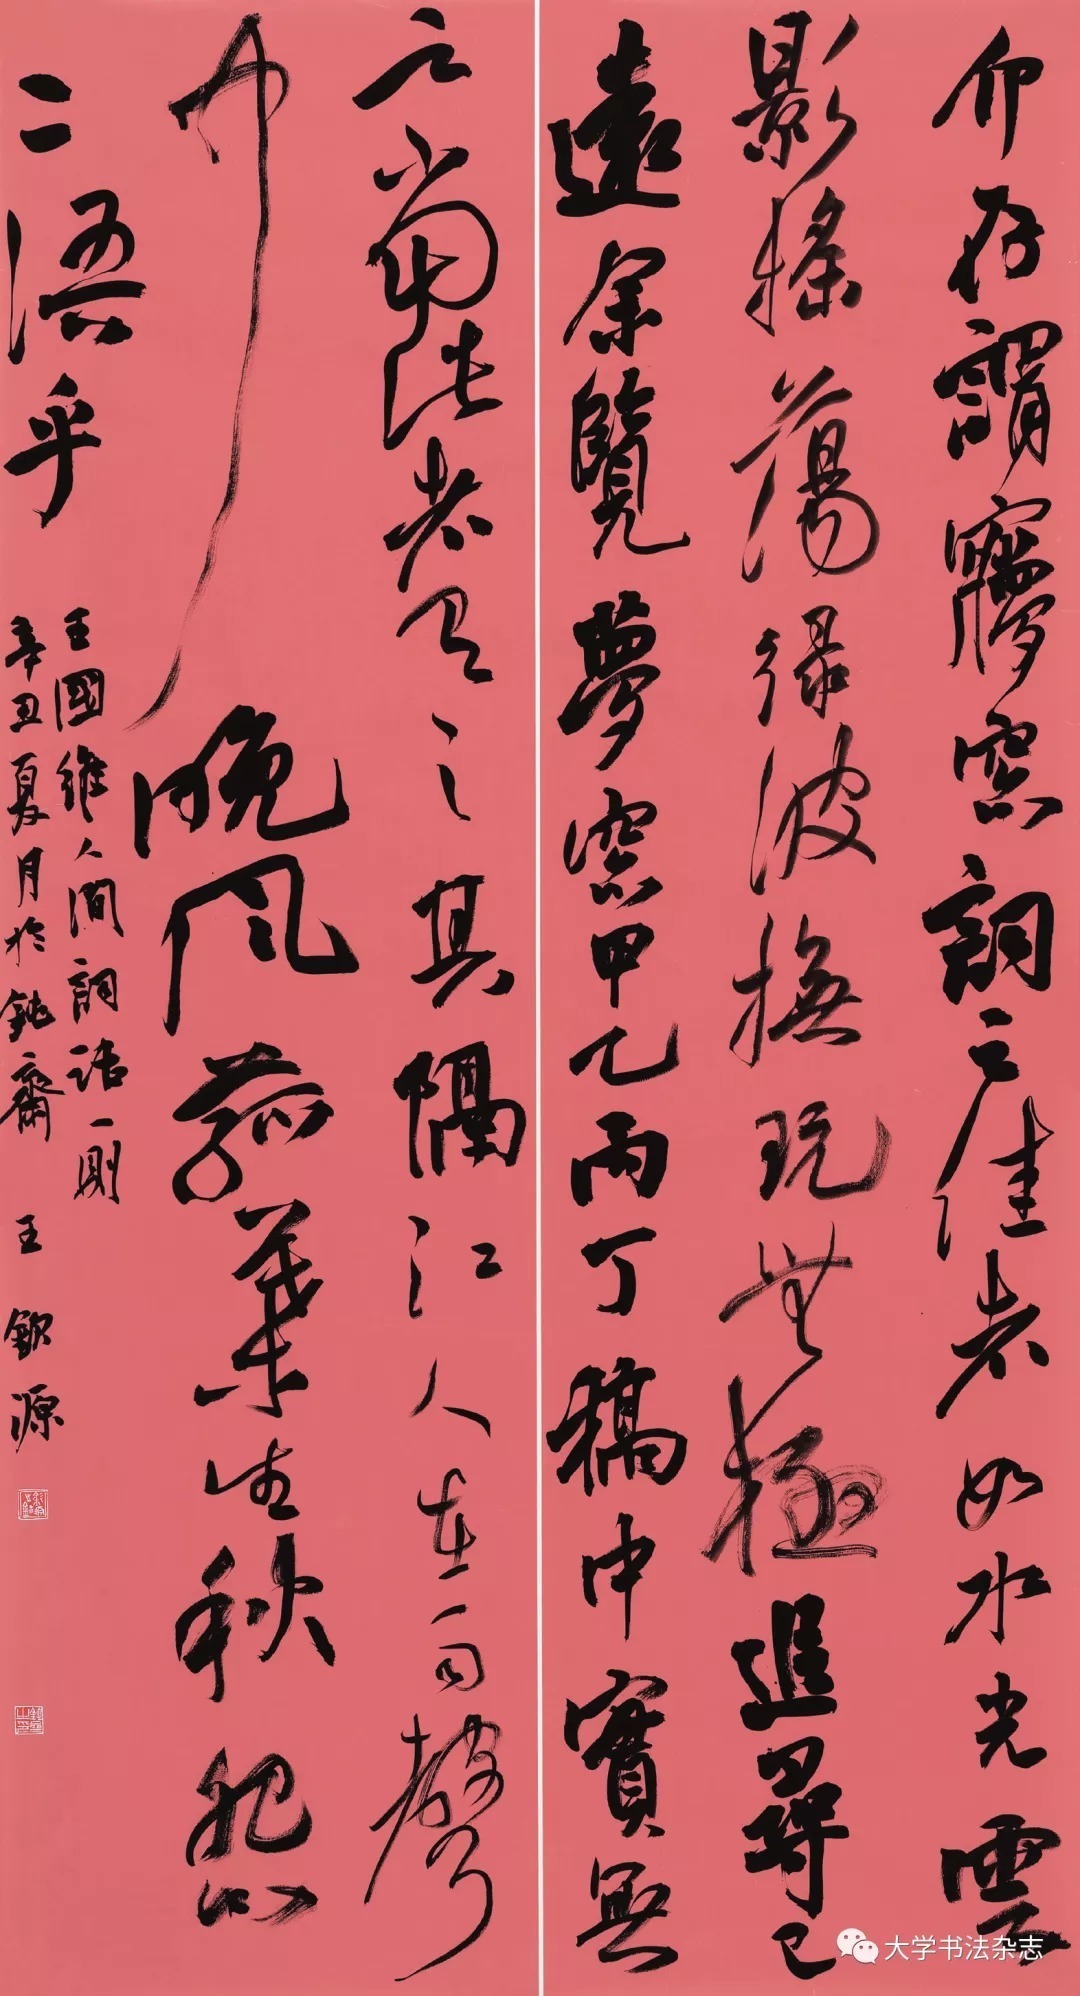 介存謂寱窓詞之佳者如水光雲
影搖蕩緑波撫玩無極追尋已
遠余覽夢窓甲乙丙丁稿中實無
足當此者有之其隔江人在雨聲
中晚風菰葉生秋怨
二語乎
王國維人間詞話一則
辛丑夏月於鈍齋 王欽源
大学书法杂志